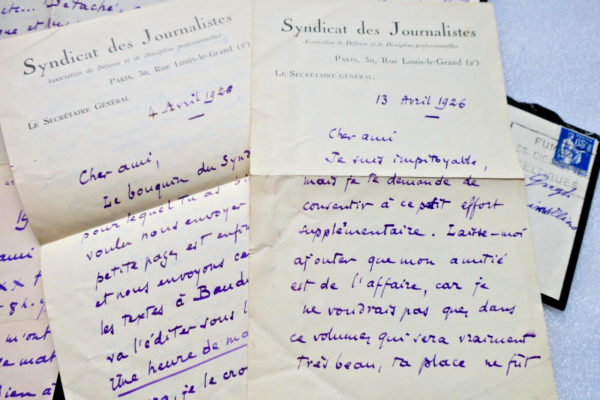 Détaché
Syndicat des Journalistes
Association de Défense et de Discipline professionnelles
PARIS, 30, Rue Louis-le-Grand (2e)
LE SECRÉTAIRE GÉNÉRAL.
4 Avril 1926
Cher ami,
Le bouquin du Synd
pour lequel tu as
voulu nous envoyer
petite page, est enfin
et nous envoyons ce
les textes à Baud
va l'éditer sous l
Une heure de ma
je le cro
Syndicat des Journalistes
Association de Défense et de Discipline professionnelles
PARIS, 30, Rue Louis-le-Grand (2e)
LE SECRÉTAIRE GÉNÉRAL.
13 Avril 1926
Cher ami
Je suis impitoyable,
mais je te demande de
consentir à ce petit effort
supplémentaire. Laisse-moi
ajouter que mon amitié
est de l'affaire, car je
ne voudrais pas que, dans
ce volume, qui sera vraiment
très beau, ta place ne fût
19
ami
XX t
gh.
m'ont
ce mat
bien à
65